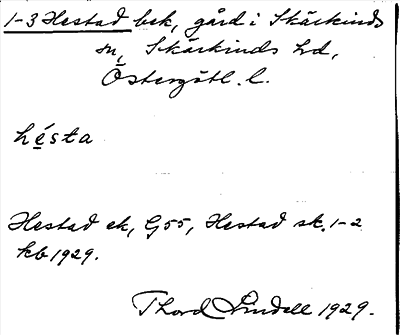 1-3 Hestad bek, gård i Skärkinds
sn, Skärkinds hd,
Östergötl. l.
hésta
Hestad ek, G55, Hestad sk. 1-2
kb 1929.
Thord Lindell 1929.